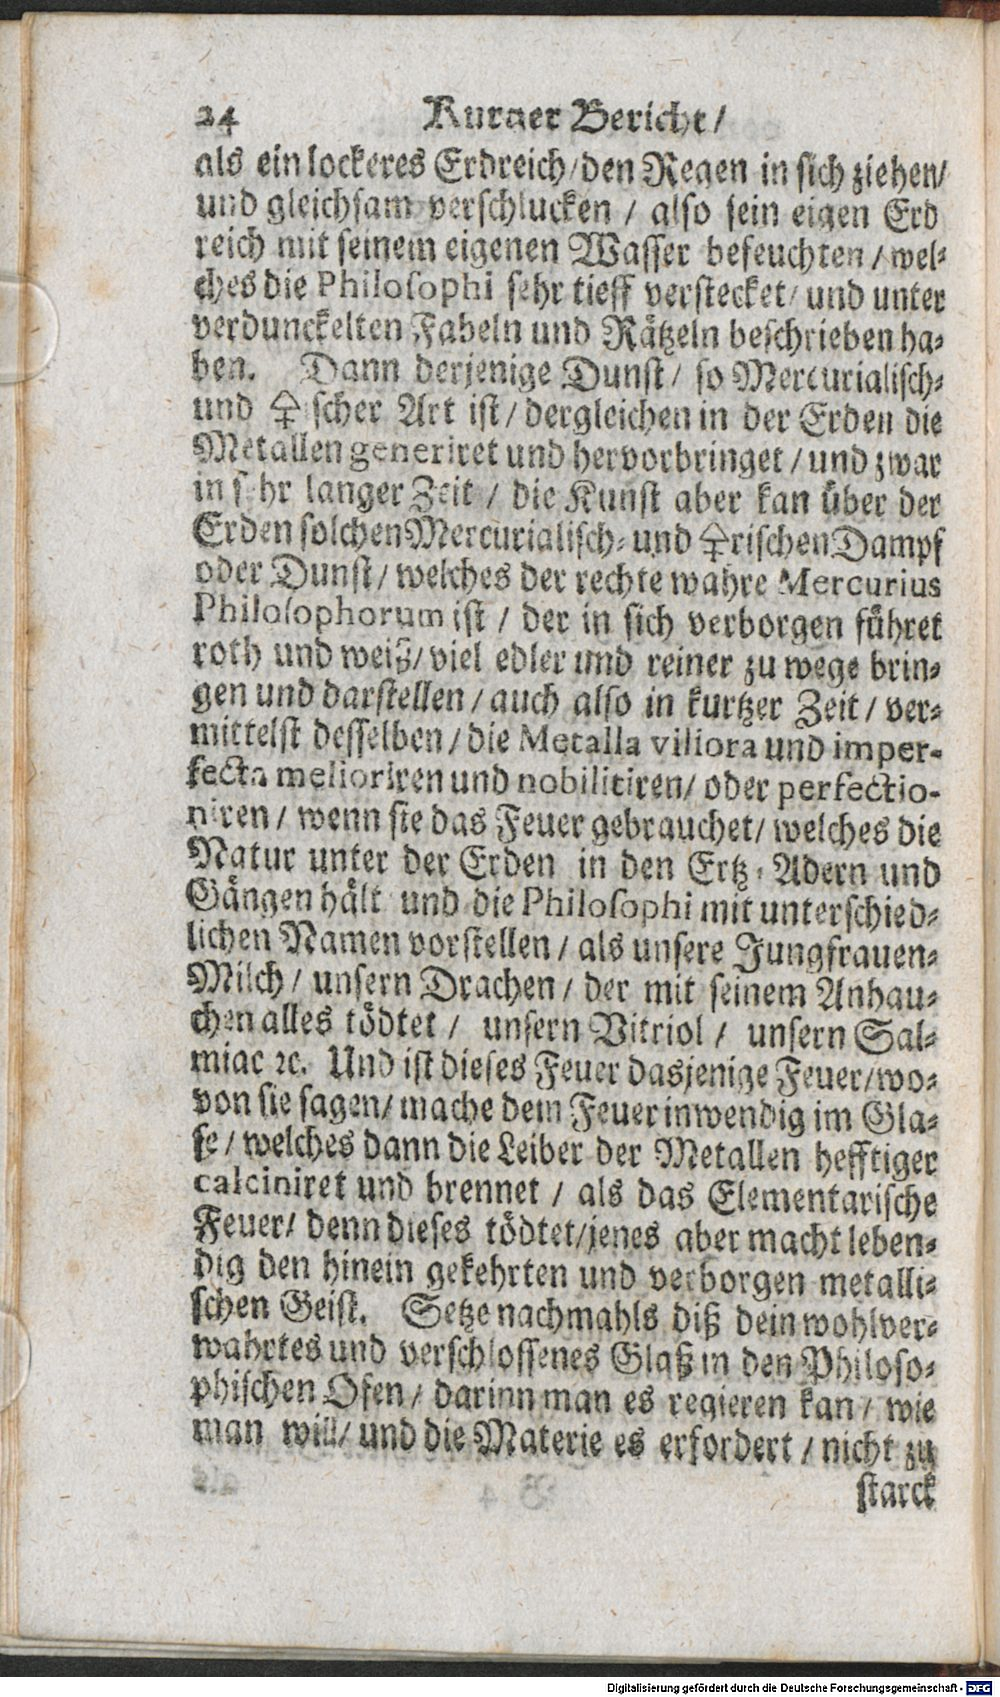 24 Kurtzer Bericht /
als ein lockeres Erdreich / den Regen in sich ziehen /
und gleichsam verschlucken / also sein eigen Erd
reich mit seinem eigenen Wasser befeuchten / wel-
ches die Philosophi sehr tieff verstecket / und unter
verdunckelten Fabeln und Rätzeln beschrieben ha-
ben. Dann derjenige Dunst / so Mercurialisch-
und 🜍 scher Art ist / dergleichen in der Erden die
Metallen generiret und hervorbringet / und zwar
in sehr langer Zeit / die Kunst aber kan über der
Erden solchen Mercurialisch- und 🜍rischen Dampf
oder Dunst / welches der rechte wahre Mercurius
Philosophorum ist / der in sich verborgen führet
roth und weiß / viel edler und reiner zu wege brin-
gen und darstellen / auch also in kurtzer Zeit / ver-
mittelst desselben / die Metalla viliora und imper-
fecta melioriren und nobilitiren / oder perfectio-
niren / wenn sie das Feuer gebrauchet / welches die
Natur unter der Erden in den Ertz-Adern und
Gängen hält und die Philosophi mit unterschied-
lichen Namen vorstellen / als unsere Jungfrauen-
Milch / unsern Drachen / der mit seinem Anhau-
chen alles tödtet / unsern Vitriol / unsern Sal-
miac ꝛc. Und ist dieses Feuer dasjenige Feuer / wo-
von sie sagen / mache dem Feuer inwendig im Gla-
se / welches dann die Leiber der Metallen hefftiger
calciniret und brennet / als das Elementarische
Feuer / denn dieses tödtet / jenes aber macht leben-
dig den hinein gekehrten und verborgen metalli-
schen Geist. Setze nachmahls diß dein wohlver-
wahrtes und verschlossenes Glaß in den Philoso-
phischen Ofen / darinn man es regieren kan / wie
man will / und die Materie es erfordert / nicht zu
starck
Digitalisierung gefördert durch die Deutsche Forschungsgemeinschaft - DFG